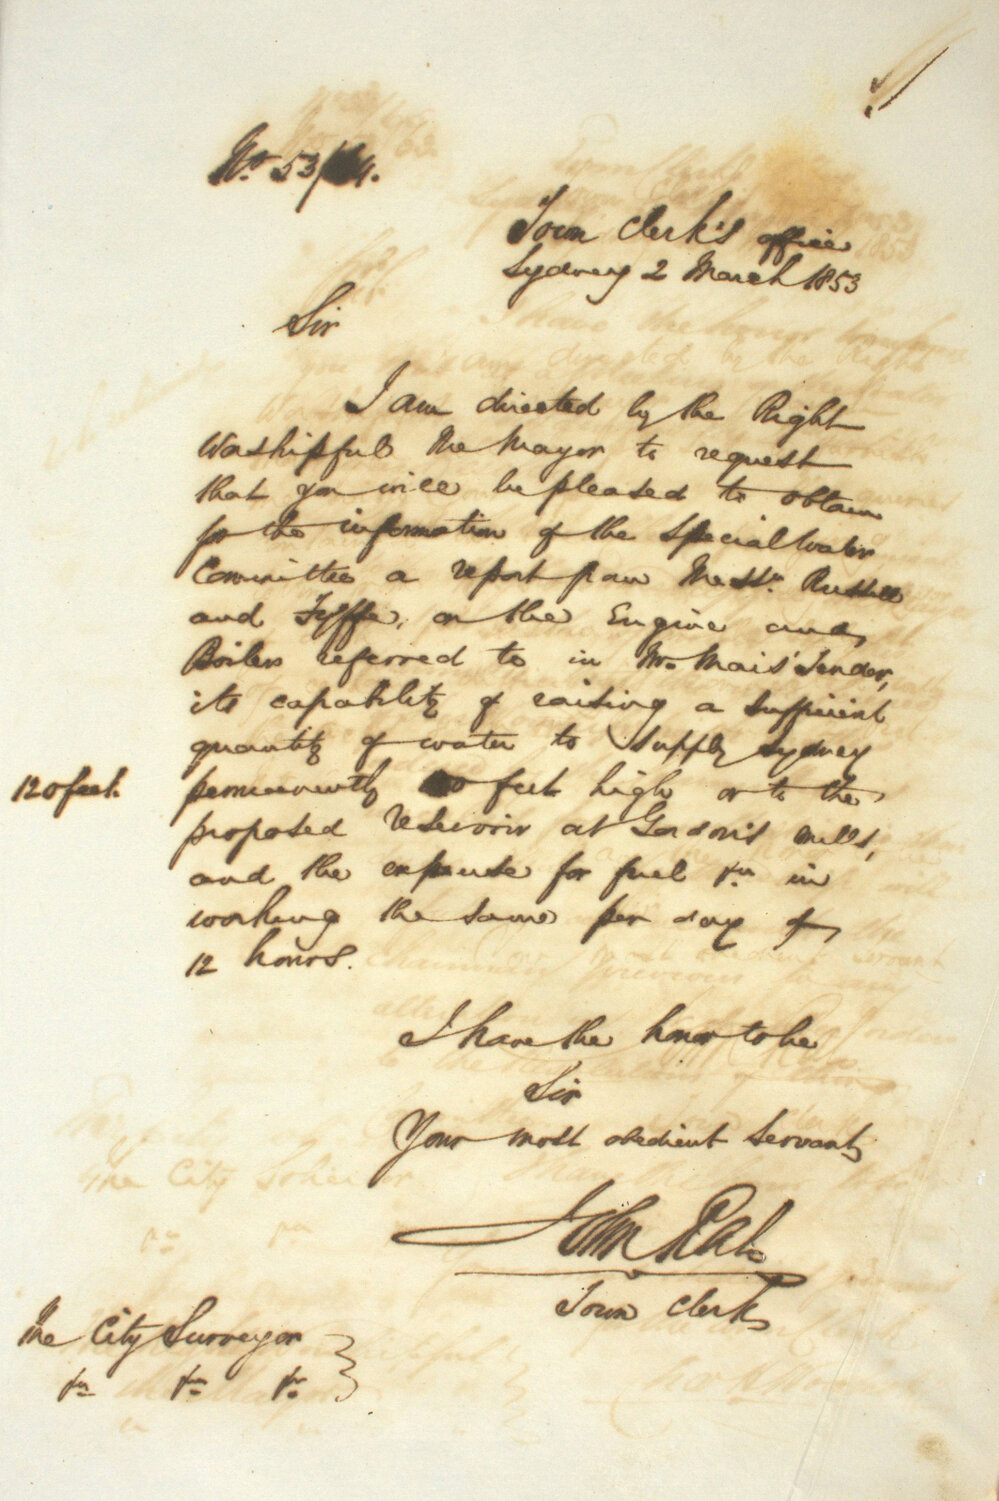 No 53/
Town Clerk's office
Sydney 2 March 1853
Sir
I am directed by the Right
Worshipful the Mayor to request
that you will be pleased to obtain
for the information of the Special Water
Committee a report from Messrs. Russell
and Fyffe, on the Engine and
Boilers referred to in Mr. Mais' Tender,
its capability of raising a sufficient
quantity of water to supply Sydney
120 feet. permanently feet high or to the
proposed reservoir at Gordon's Mills,
and the expense for fuel &c in
working the same per day of
12 hours.
I have the honor to be
Sir
Your most obedient Servant
John Rae
Town Clerk
The City Surveyor
&c &c &c